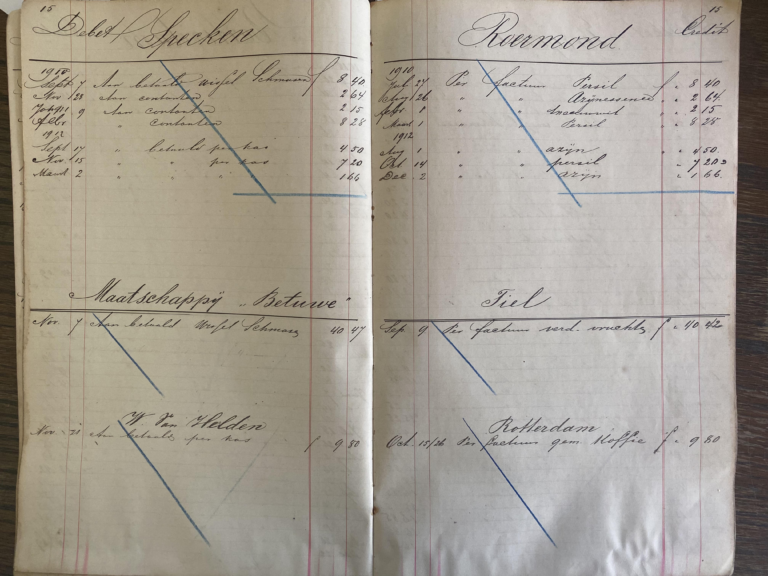 15
Debet Specken
1910
Sept 7 Aan betaald wissel Schmasen f 8 40
Nov. 28 Aan contanten 2 64
9 Aan contanten 2 15
" contanten 8 28
1912
Sept 17 " betaald per kas 4 50
Nov. 15 " " per kas 7 20
Maart 2 " " " 1 66
Maatschappij "Betuwe"
Nov. 7 Aan betaald Wissel 40 47
W Van Helden
Nov. 21 Aan betaald per kas f 9 80
15
Roermond Credit
1910
27 Per factuur Persil f " 8 40
26 " " Azijnessence " 2 64
" " " 2 15
Maart 1 " " Persil " 8 28
1912
Aug 1 " azijn " 4 50
Okt 14 " persil " 7 20
Dec 2 " azijn " 1 66
Tiel
Sep 9 Per factuur verd. vruchten f " 40 42
Rotterdam
Oct 15/26 Per factuur gem. Koffie f " 9 80